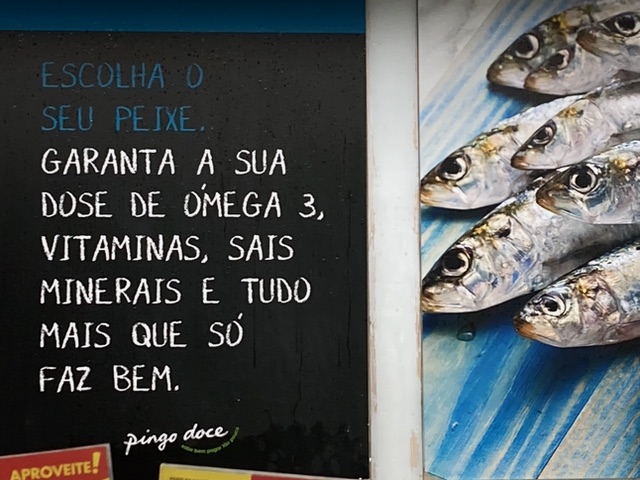 ESCOLHA O
SEU PEIXE.
GARANTA A SUA
DOSE DE ÓMEGA 3,
VITAMINAS, SAIS
MINERAIS E TUDO
MAIS QUE SÓ
FAZ BEM.
pingo doce
APROVEITE!